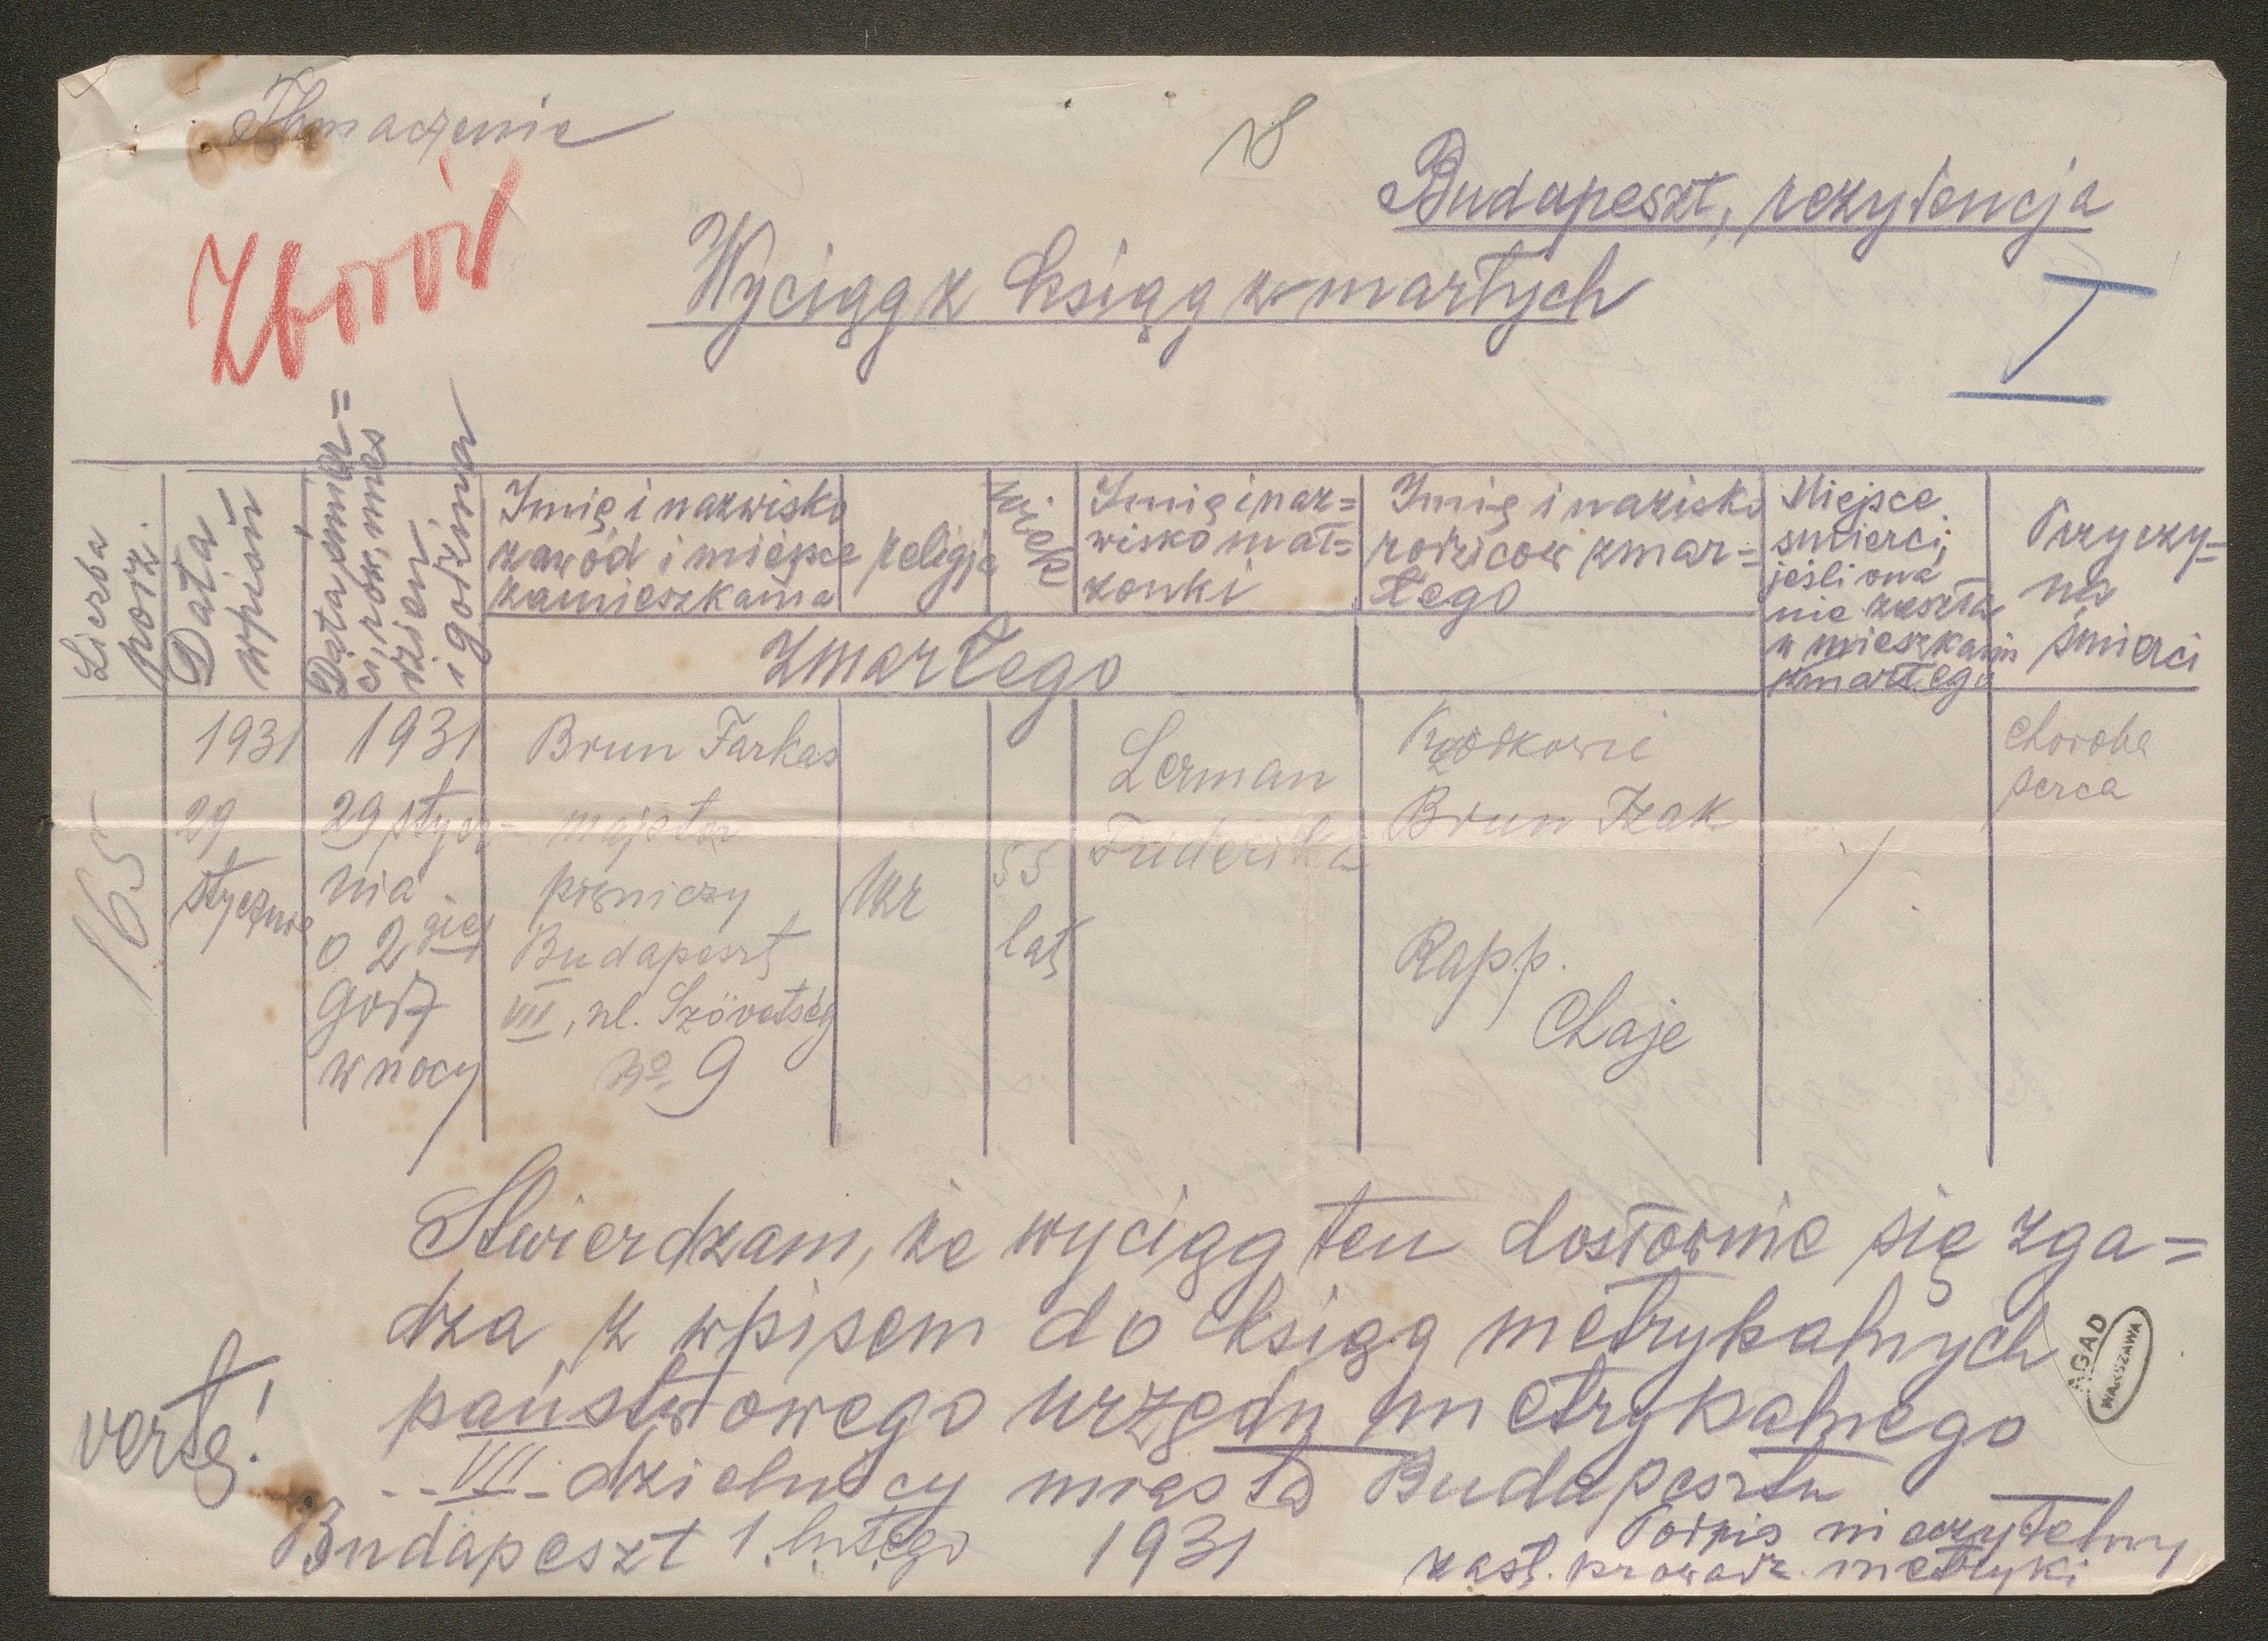 Tłomaczenie
18
Budapeszt, rezydencja
Zborów
Wyciąg z ksiąg zmarłych
I
Liczba porz.
Data wpisu
Data śmier=
ci, rok, mies
dzień
i godzina
Imię i nazwisko
zawód i miejsce
zamieszkania
religja
wiek
Imię i naz=
wisko mał=
żonki
Imię i nazisko
rodziców zmar=
łego
Miejsce
śmierci,
jeśli ona
nie zaszła
w mieszkaniu
zmarłego
Przyczy=
na
śmierci
zmarłego
165
1931
29
stycznia
1931
29 stycz-
nia
o 2 giej
godz
w nocy
Brun Farkas
majster
Budapeszt
VII, ul. Szövetség
No 9
55
lat
Lerman
Friderika
Brun Izak
Rapp.
Chaje
/.
choroba
serca
Stwierdzam, że wyciąg ten dosłownie się zga=
dza z wpisem do ksiąg metrykalnych
państwowego urzędu metrykalnego
VII dzielnicy miasta Budapesztu
verte!
Budapeszt 1. lutego 1931
Podpis nieczytelny
zast. prowadz. metryki
AGAD
WARSZAWA